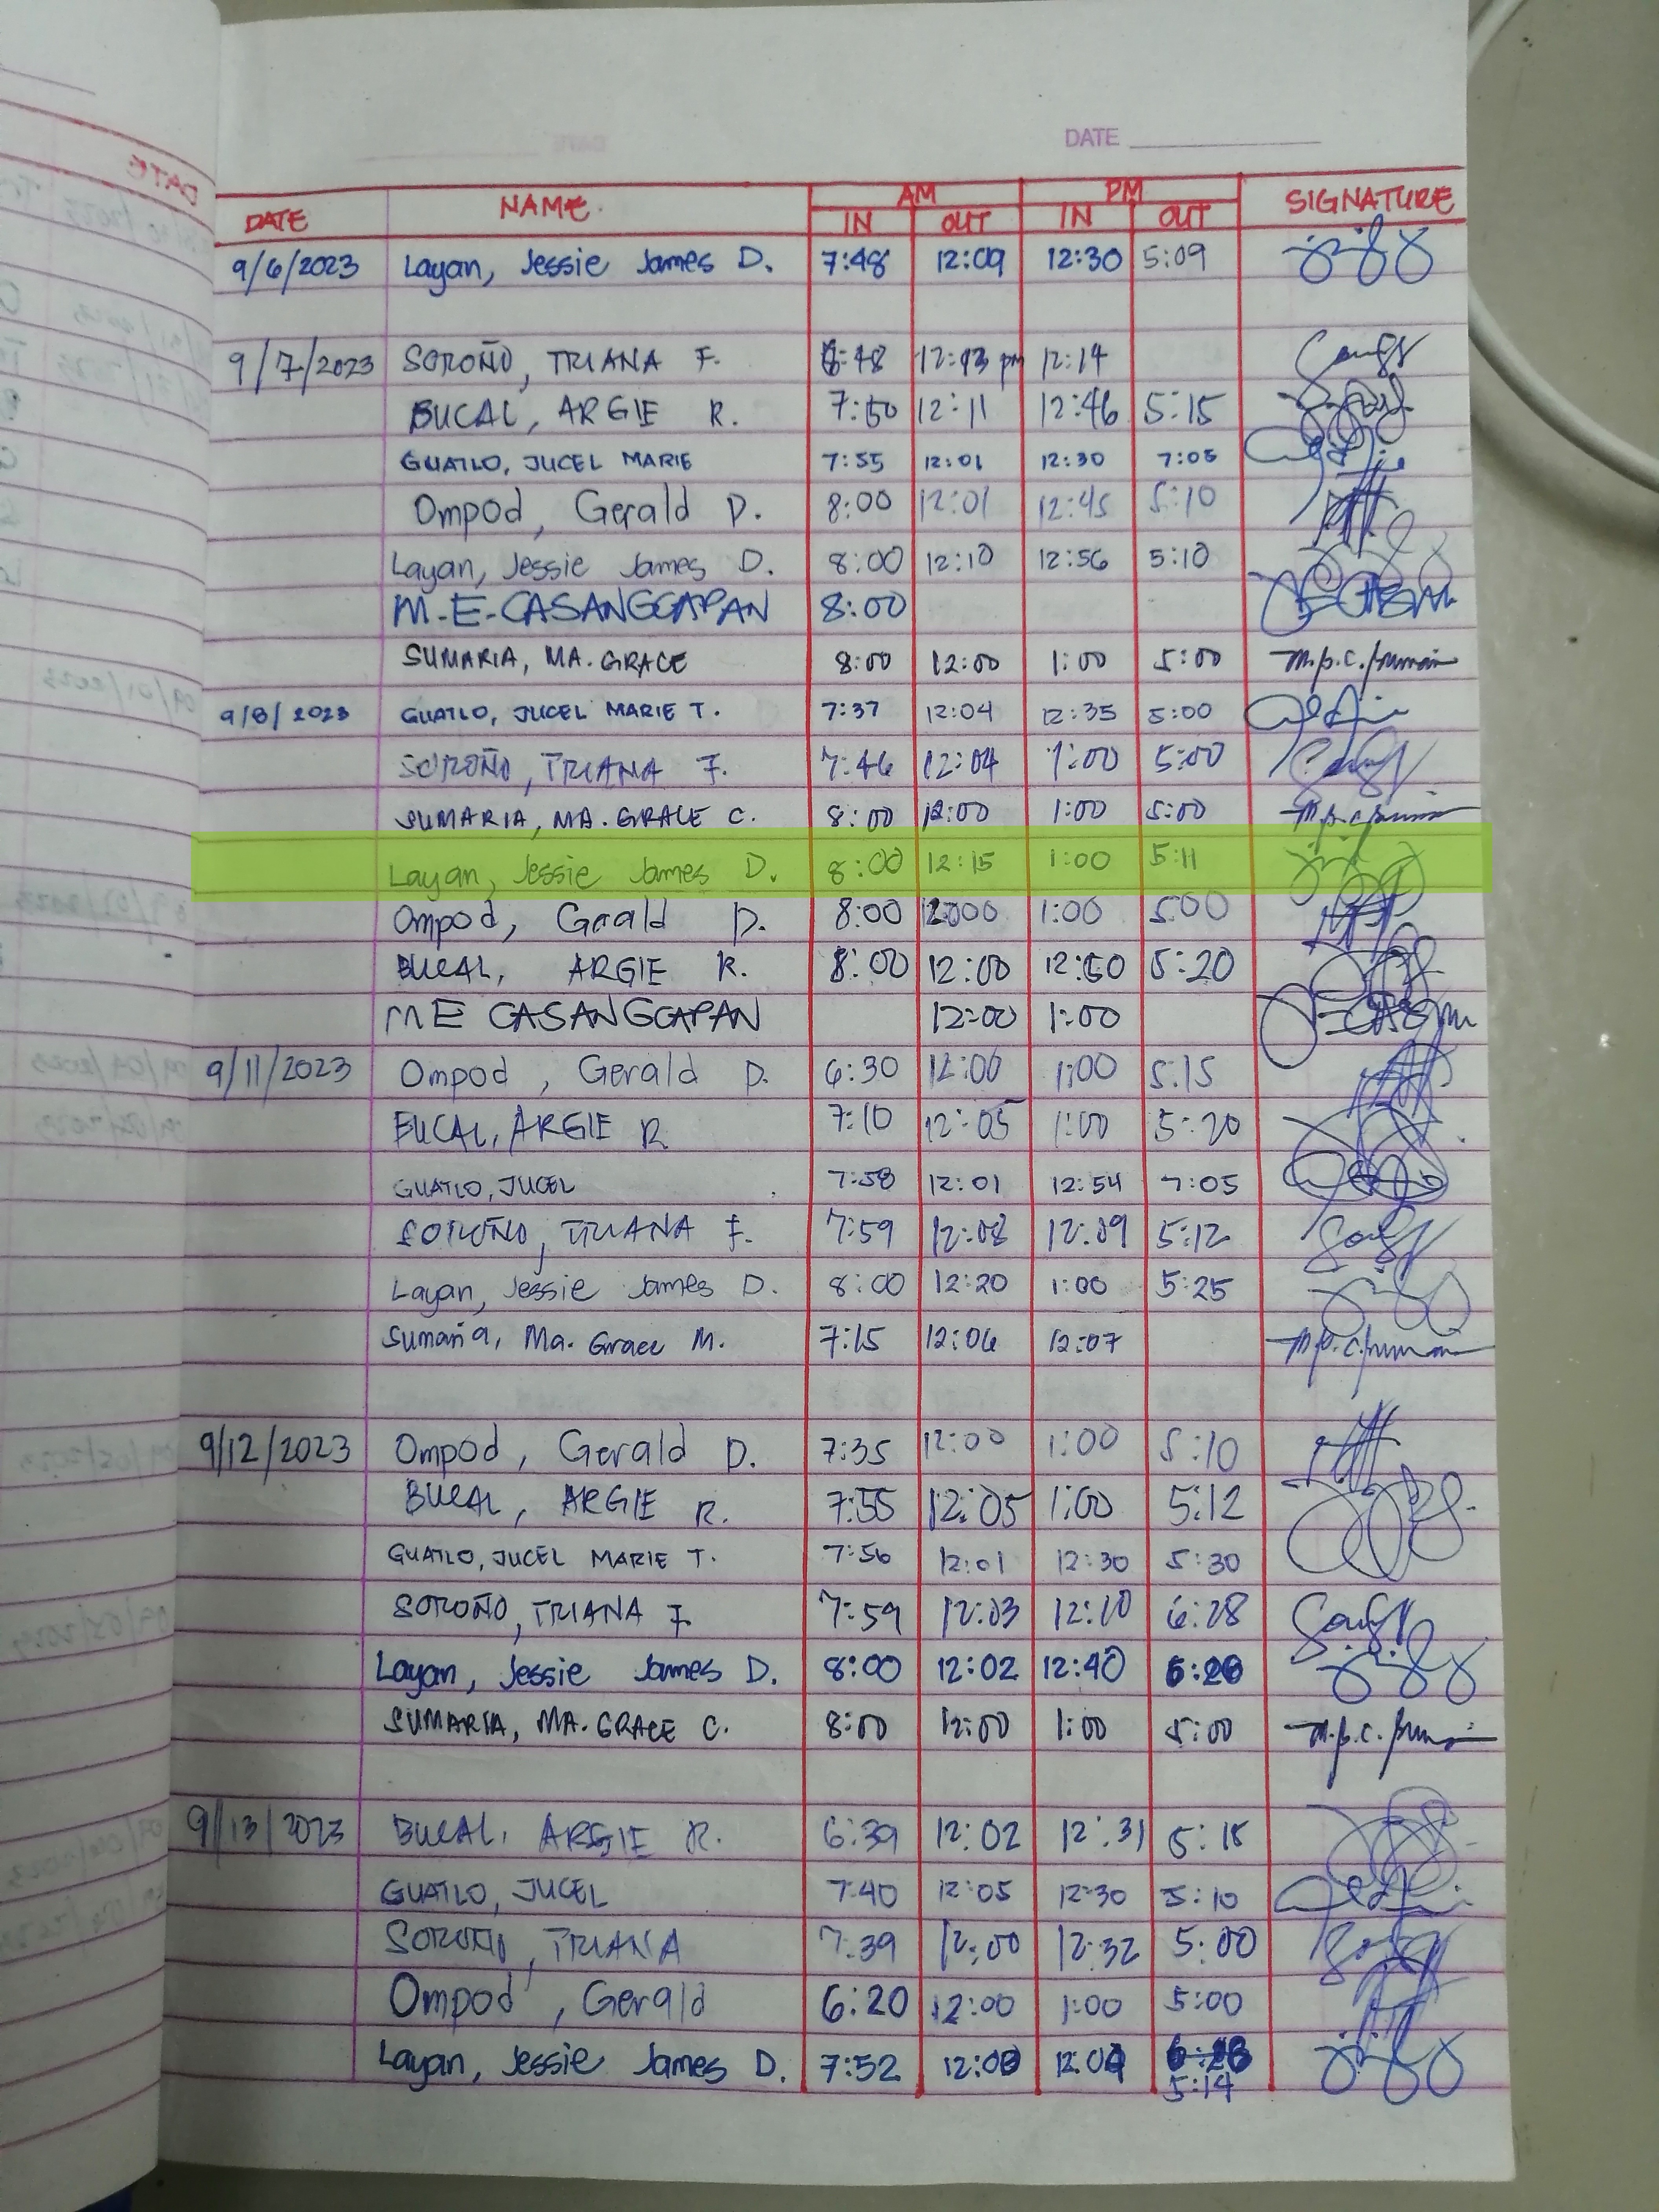 DATE
DATE NAME. AM PM SIGNATURE
IN OUT IN OUT
9/6/2023 Layan, Jessie James D. 7:48 12:09 12:30 5:09
9/7/2023 SOROÑO, TRIANA F. 12:13 pm 12:14
BUCAL, ARGIE R. 7:50 12:11 12:46 5:15
GUATLO, JUCEL MARIE 7:55 12:01 12:30 7:05
Ompod, Gerald D. 8:00 12:01 12:45 5:10
Layan, Jessie James D. 8:00 12:10 12:56 5:10
M-E-CASANGGAPAN 8:00
SUMARIA, MA. GRACE 8:00 12:00 1:00 5:00
9/8/2023 GUATLO, JUCEL MARIE T. 7:37 12:04 12:35 5:00
SOROÑO, TRIANA F. 7:46 12:04 1:00 5:00
SUMARIA, MA. GRACE C. 8:00 12:00 1:00 5:00
Layan, Jessie James D. 8:00 12:15 1:00 5:11
Ompod, Gerald D. 8:00 1:00 5:00
BUCAL, ARGIE R. 8:00 12:00 12:50 5:20
M E CASANGGAPAN 12:00 1:00
9/11/2023 Ompod, Gerald D. 6:30 12:00 1:00 5:15
BUCAL, ARGIE R 7:10 12:05 1:00 5:20
GUATLO, JUCEL 7:58 12:01 12:54 7:05
SOROÑO, TRIANA F. 7:59 12:08 12:09 5:12
Layan, Jessie James D. 8:00 12:20 1:00 5:25
Sumaria, Ma. Grace M. 7:15 12:06 12:07
9/12/2023 Ompod, Gerald D. 7:35 12:00 1:00 5:10
BUCAL, ARGIE R. 7:55 12:05 1:00 5:12
GUATLO, JUCEL MARIE T. 7:56 12:01 12:30 5:30
SOROÑO, TRIANA F. 7:59 12:03 12:10 6:28
Layan, Jessie James D. 8:00 12:02 12:40
SUMARIA, MA. GRACE C. 8:00 12:00 1:00 5:00
9/13/2023 BUCAL, ARGIE R. 6:39 12:02 12:31 5:15
GUATLO, JUCEL 7:40 12:05 12:30 5:10
SOROÑO, TRIANA 7:39 12:00 12:32 5:00
Ompod, Gerald 6:20 12:00 1:00 5:00
Layan, Jessie James D. 7:52
5:14